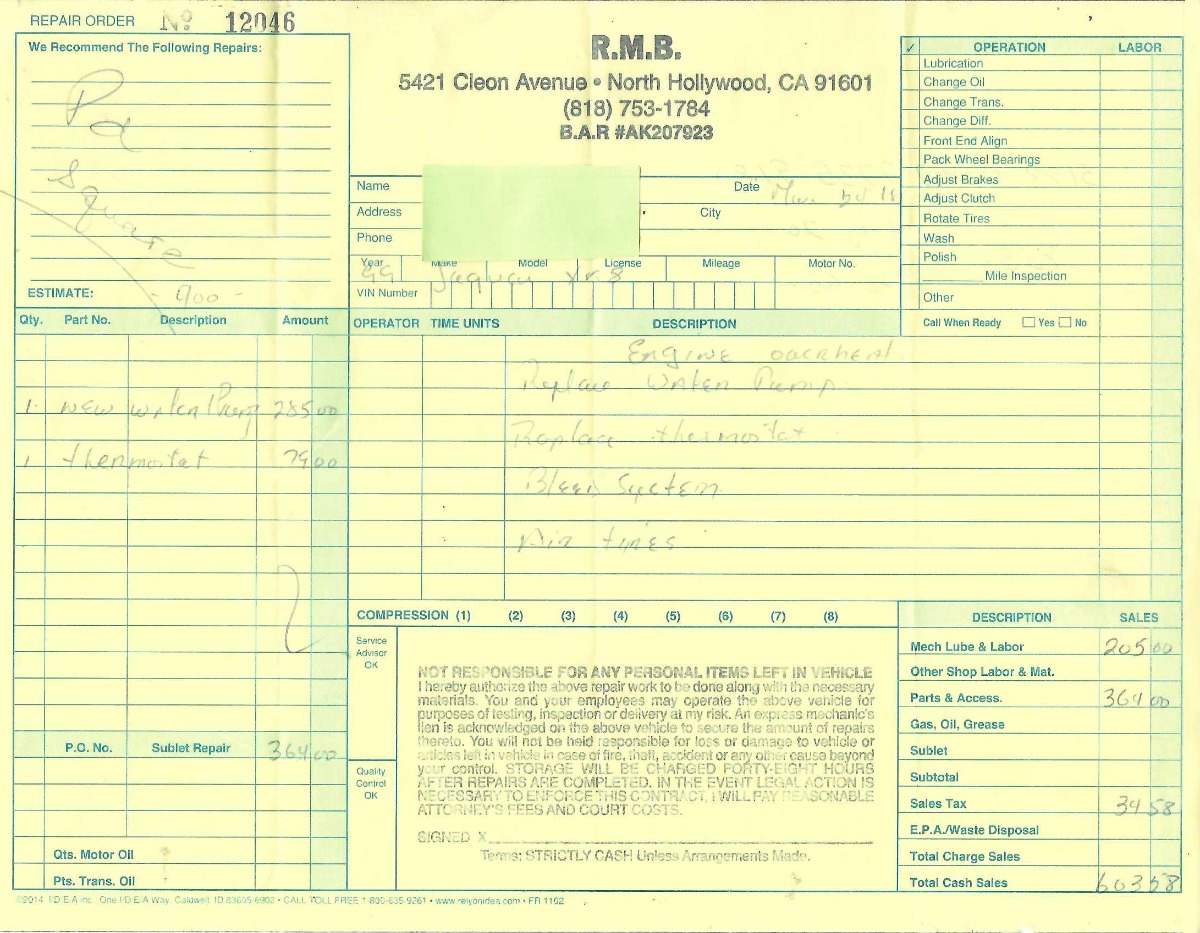 REPAIR ORDER Nº 12046
We Recommend The Following Repairs:
Pd
Square
ESTIMATE: - 900 -
R.M.B.
5421 Cleon Avenue • North Hollywood, CA 91601
(818) 753-1784
B.A.R #AK207923
Name
Date
Address
City
Phone
Year Make Model License Mileage Motor No.
99 Jaguar XK8
VIN Number
✓ OPERATION LABOR
Lubrication
Change Oil
Change Trans.
Change Diff.
Front End Align
Pack Wheel Bearings
Adjust Brakes
Adjust Clutch
Rotate Tires
Wash
Polish
Mile Inspection
Other
Call When Ready Yes No
Qty. Part No. Description Amount
1. NEW Water Pump 285 00
1 thermostat 79 00
P.O. No. Sublet Repair 364 00
Qts. Motor Oil
Pts. Trans. Oil
OPERATOR TIME UNITS DESCRIPTION
Engine overheat.
Replace Water Pump
Replace thermostat
Bleed System
Air tires
COMPRESSION (1) (2) (3) (4) (5) (6) (7) (8)
Service
Advisor
OK
Quality
Control
OK
NOT RESPONSIBLE FOR ANY PERSONAL ITEMS LEFT IN VEHICLE
I hereby authorize the above repair work to be done along with the necessary
materials. You and your employees may operate the above vehicle for
purposes of testing, inspection or delivery at my risk. An express mechanic's
lien is acknowledged on the above vehicle to secure the amount of repairs
thereto. You will not be held responsible for loss or damage to vehicle or
articles left in vehicle in case of fire, theft, accident or any other cause beyond
your control. STORAGE WILL BE CHARGED FORTY-EIGHT HOURS
AFTER REPAIRS ARE COMPLETED. IN THE EVENT LEGAL ACTION IS
NECESSARY TO ENFORCE THIS CONTRACT, I WILL PAY REASONABLE
ATTORNEY'S FEES AND COURT COSTS.
SIGNED X
Terms: STRICTLY CASH Unless Arrangements Made.
DESCRIPTION SALES
Mech Lube & Labor 205 00
Other Shop Labor & Mat.
Parts & Access. 364 00
Gas, Oil, Grease
Sublet
Subtotal
Sales Tax 34 58
E.P.A./Waste Disposal
Total Charge Sales
Total Cash Sales 603 58
©2014 I/D/E/A inc. One I/D/E/A Way, Caldwell, ID 83605-6902 • CALL TOLL FREE 1-800-635-9261 • www.relyonidea.com • FR 1102